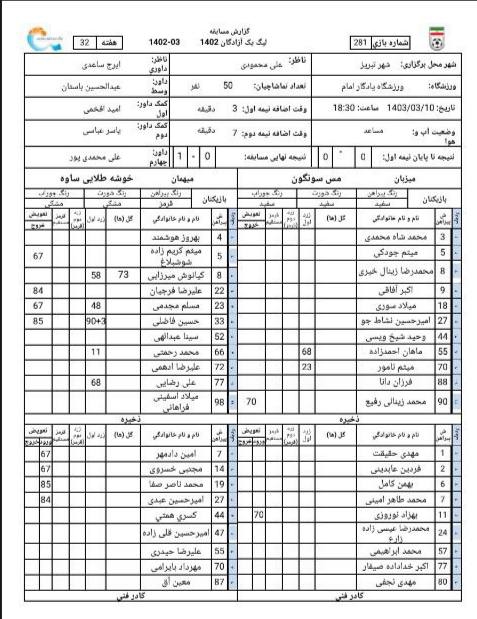 گزارش مسابقه
لیگ یک آزادگان 1402
1402-03
هفته 32
شماره بازی 281
شهر محل برگزاری: شهر تبریز
ناظر: علی محمودی
ناظر داوری: ایرج ساعدی
ورزشگاه: ورزشگاه یادگار امام
تعداد تماشاچیان: 50 نفر
داور: وسط عبدالحسین باستان
تاریخ: 1403/03/10 ساعت: 18:30
وقت اضافه نیمه اول: 3 دقیقه
کمک داور: اول امید افخمی
وضعیت آب و هوا: مساعد
وقت اضافه نیمه دوم: 7 دقیقه
کمک داور: دوم یاسر عباسی
نتیجه تا پایان نیمه اول: 0 - 0
نتیجه نهایی مسابقه: 0 - 1
داور: چهارم علی محمدی پور
میزبان مس سونگون
میهمان خوشه طلایی ساوه
بازیکنان
رنگ پیراهن سفید
رنگ شورت سفید
رنگ جوراب سفید
بازیکنان
رنگ پیراهن قرمز
رنگ شورت مشکی
رنگ جوراب مشکی
ش پیراهن نام و نام خانوادگی گل (ها) زرد اول زرد دوم (قرمز) قرمز مستقیم تعویض خروج
3 محمد شاه محمدی
5 میثم جودکی
8 محمدرضا زینال خیری
9 اکبر آفاقی
18 میلاد سوری
27 امیرحسین نشاط جو
44 وحید شیخ ویسی
55 ماهان احمدزاده 68
70 میثم نامور 23
88 فرزان دانا
90 محمد زینالی رفیع 70
ذخیره
ش پیراهن نام و نام خانوادگی گل (ها) زرد اول زرد دوم (قرمز) قرمز مستقیم تعویض ورود خروج
1 مهدی حقیقت
2 فردین عابدینی
6 بهمن کامل
7 محمد طاهر امینی
11 بهزاد نوروزی 70
24 محمدرضا عیسی زاده زارع
57 محمد ابراهیمی
77 اکبر خداداده صیفار
80 مهدی نجفی
کادر فنی
ش پیراهن نام و نام خانوادگی گل (ها) زرد اول زرد دوم (قرمز) قرمز مستقیم تعویض خروج
4 بهروز هوشمند
5 میثم کریم زاده شوشبلاغ 67
8 کیانوش میرزایی 73 58
22 علیرضا فرجیان 84
23 مسلم مجدمی 48 67
33 حسین فاضلی 90+3 85
52 سینا عبدالهی
66 محمد رحمتی 11
72 علیرضا ادهمی
77 علی رضایی 68
98 میلاد اسفینی فراهانی
ذخیره
ش پیراهن نام و نام خانوادگی گل (ها) زرد اول زرد دوم (قرمز) قرمز مستقیم تعویض ورود خروج
7 امین دادمهر 67
14 مجتبی خسروی 67
19 محمد ناصر صفا 85
27 امیرحسین عبدی 84
44 کسری همتی
47 امیرحسین قلی زاده
55 علیرضا حیدری
70 مهرداد بایرامی
87 معین آق
کادر فنی